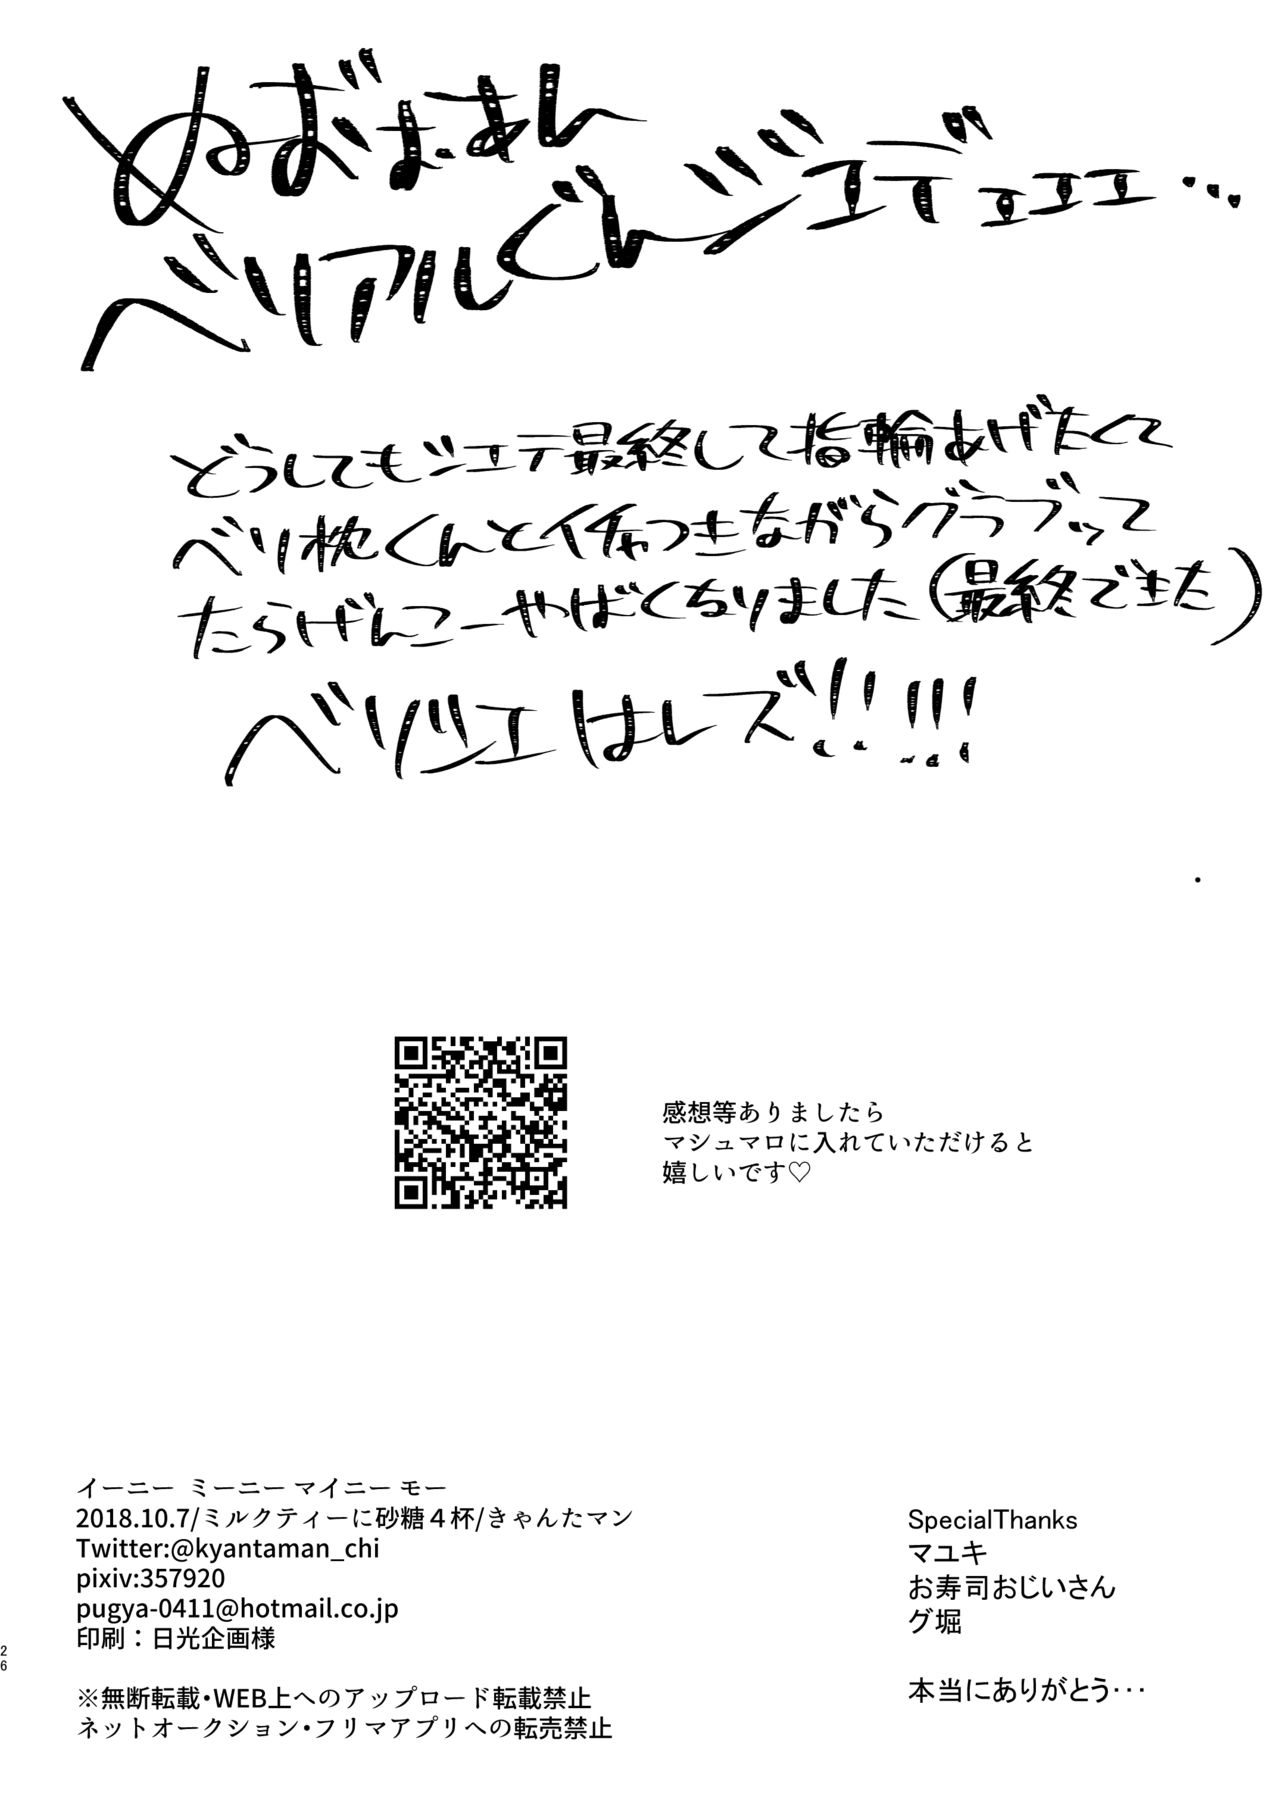 ぬおおぉあん
ベリアルぐんジエデェエエ…
どうしてもジエテ最終して指輪あげたくて
ベリ枕くんとイチャつきながらグラブッて
たらげんこーやばくなりました(最終できた)
ベリジエはレズ!!!!!
感想等ありましたら
マシュマロに入れていただけると
嬉しいです♡
イーニー ミーニー マイニー モー
2018.10.7/ミルクティーに砂糖４杯/きゃんたマン
Twitter:@kyantaman_chi
pixiv:357920
pugya-0411@hotmail.co.jp
印刷：日光企画様
※無断転載・WEB上へのアップロード転載禁止
ネットオークション・フリマアプリへの転売禁止
SpecialThanks
マユキ
お寿司おじいさん
グ堀
本当にありがとう・・・
26